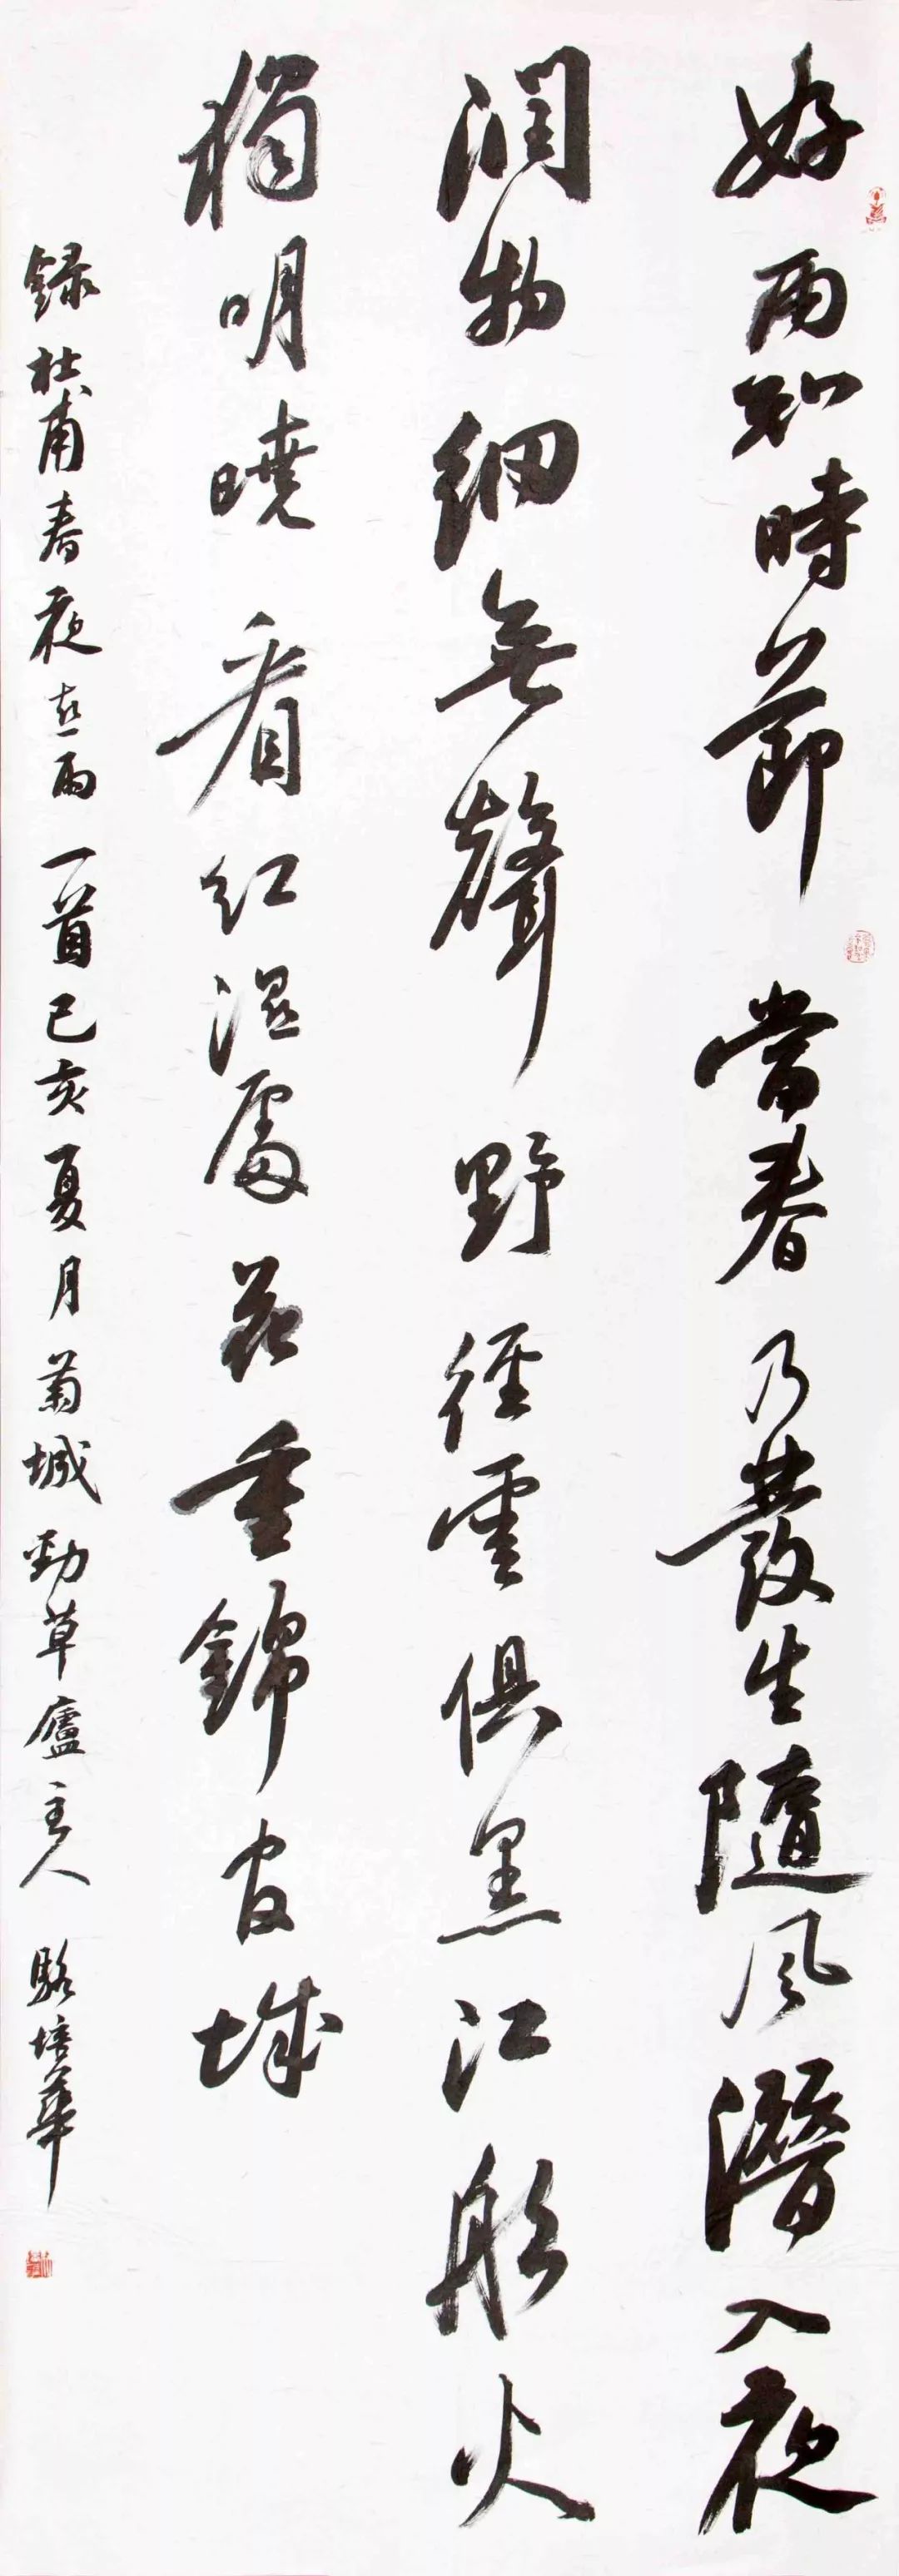 好雨知時節當春乃發生隨風潛入夜
潤物細無聲野徑雲俱黑江船火
獨明曉看紅濕處花重錦官城
録杜甫春夜喜雨一首己亥夏月菊城勁草廬主人駱培華